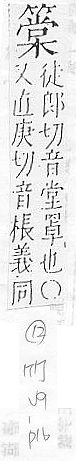 徒郎切音堂罩也○
又直庚切音棖義同
⑫
竹
v9
p16